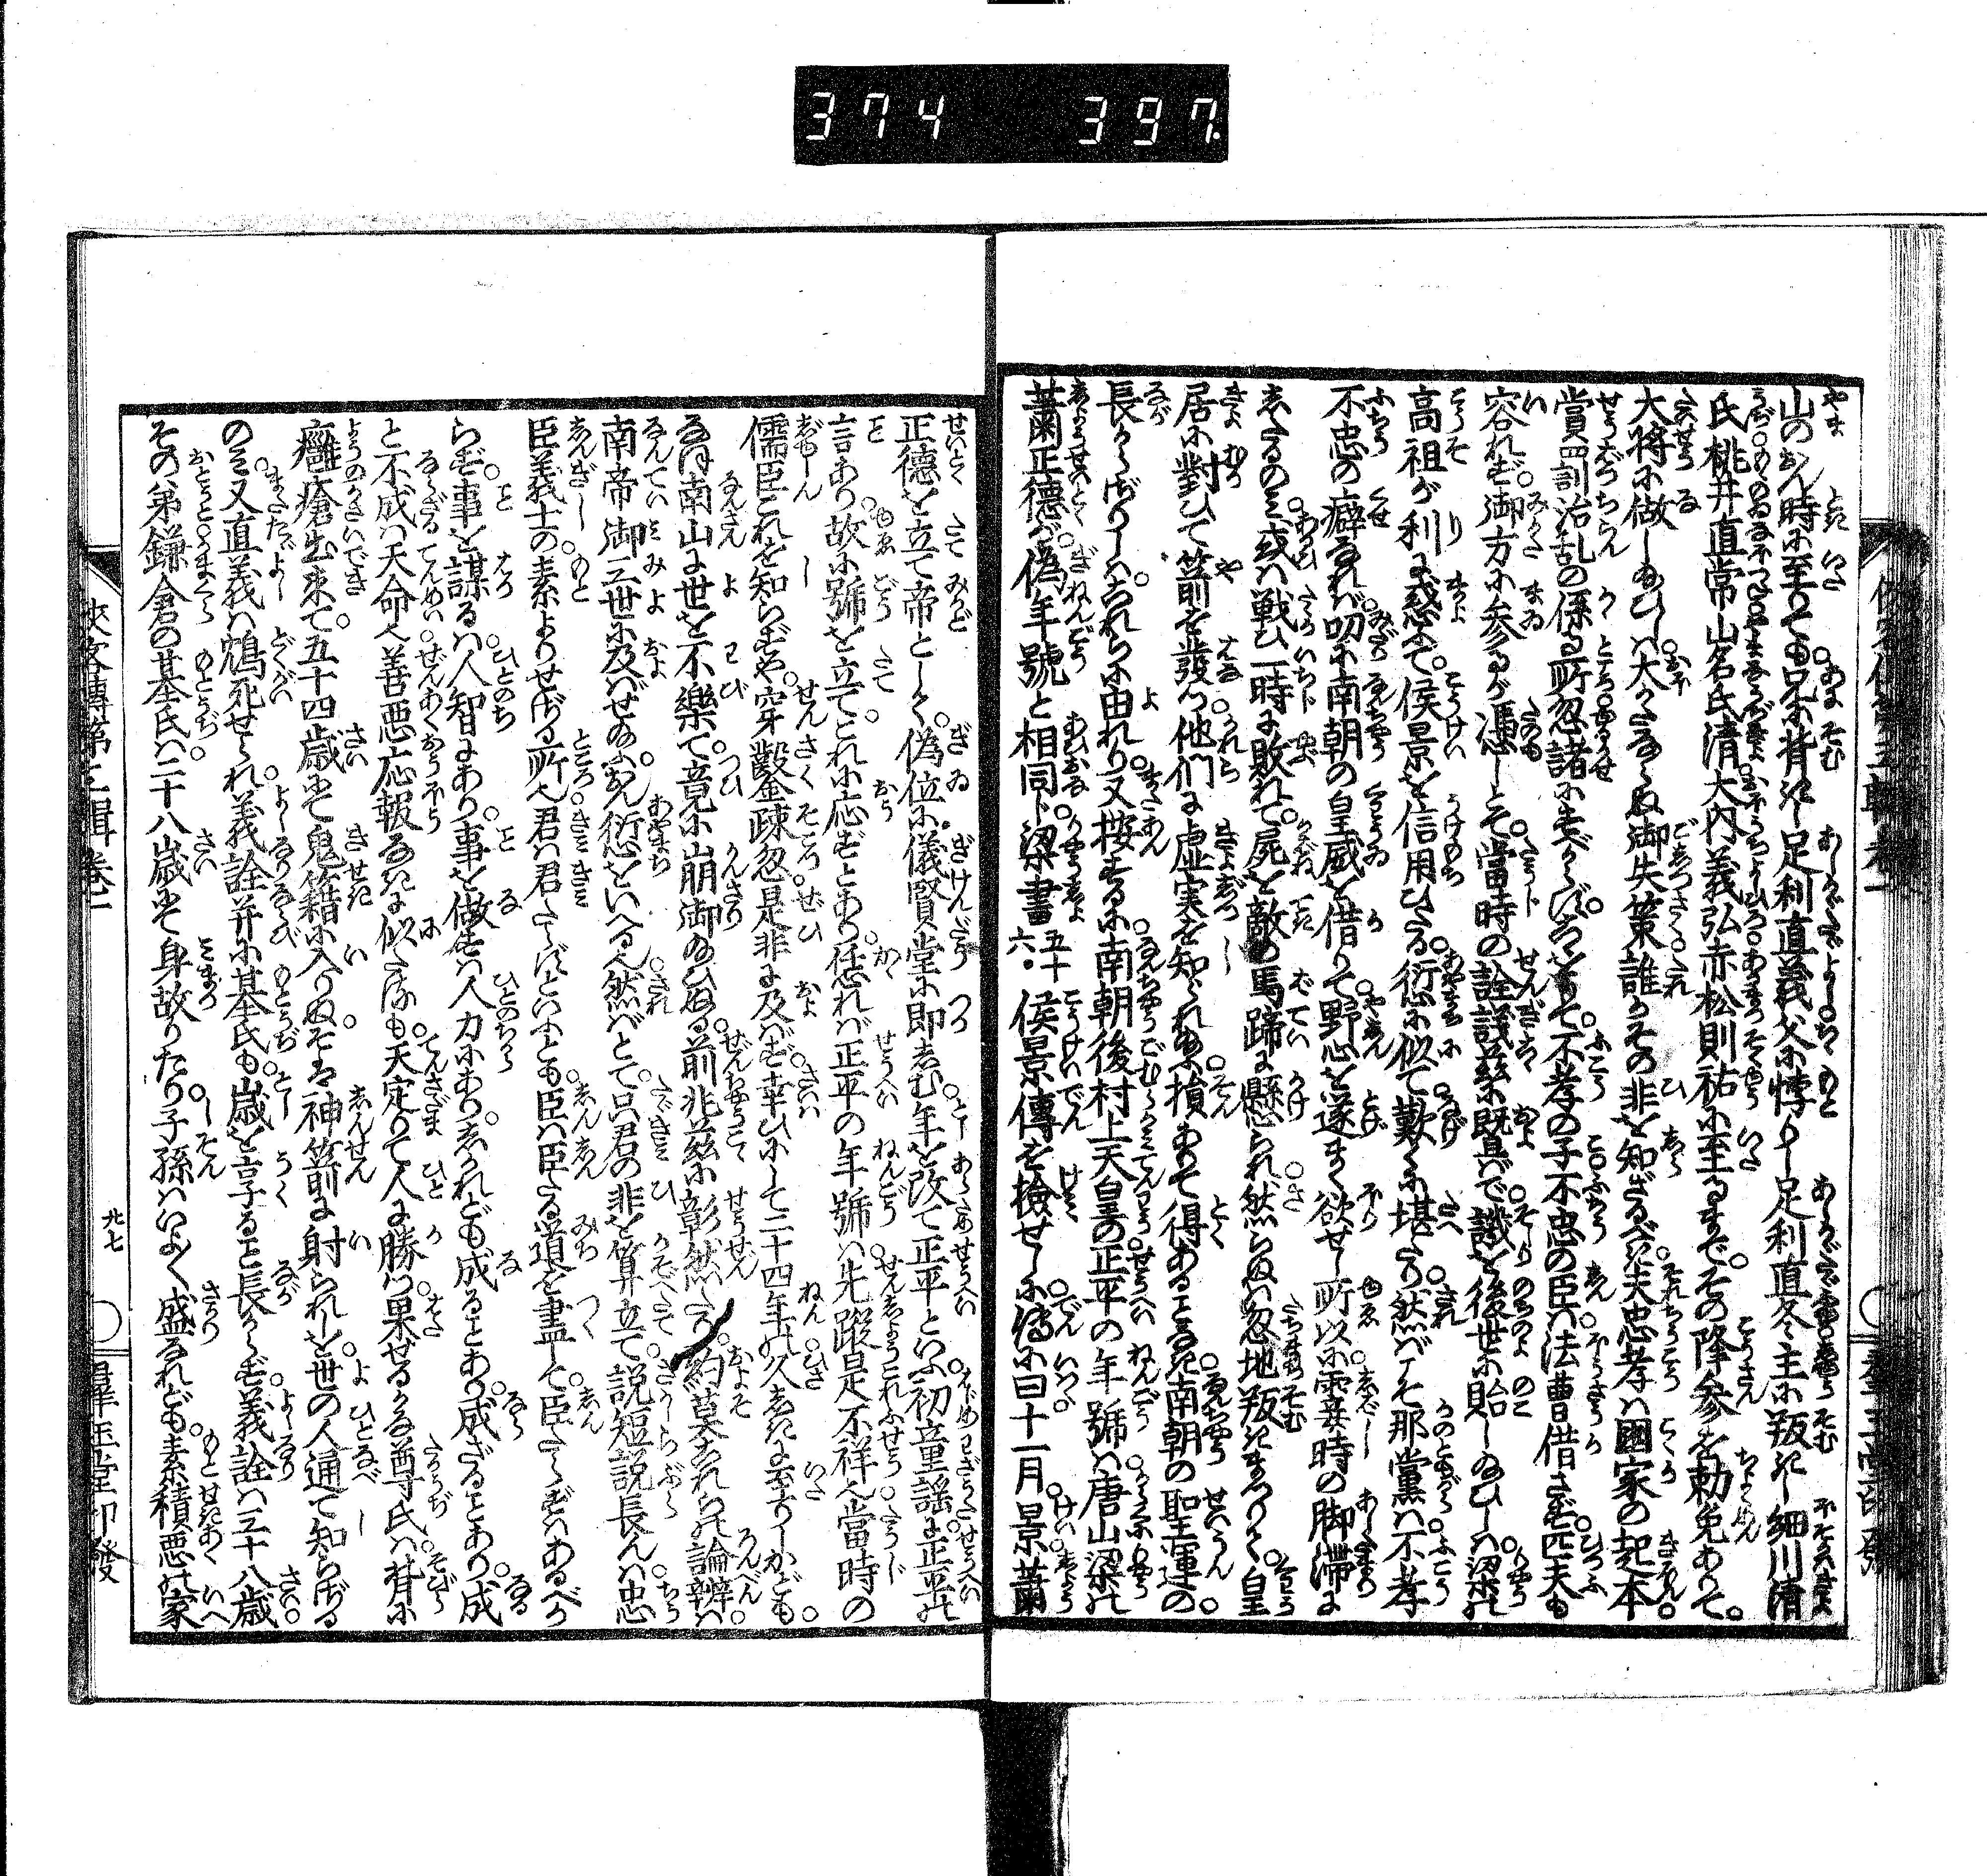 374 397
山のおん時に至りても兄に背きし足利直義父に悖りし足利直冬主に叛きし細川清
氏桃井直常山名氏清大内義弘赤松則祐に至るまでその降参を勅免ありて
大将に做しゐひしハ大かたならぬ御失策誰かその非を知ざるべき夫忠孝ハ國家の起本
賞罰治乱の係る所忽諸にすべからず不孝の子不忠の臣ハ法曹借さず匹夫も
容れず御方に参るが憑しとて當時の詮議茲に既ばで譏を後世に貽しゐひしハ梁の
高祖が利に惑ふて侯景を信用ひたる衍に似て歎くに堪たり然バにや那黨ハ不孝
不忠の癖なれバ叨に南朝の皇威を借りて野心を遂まく欲せし所以に霎時の脚滞に
したるのミ或ハ戦ひ一時に敗れて屍を敵の馬蹄に懸られ然らぬハ忽地叛きまつりて皇
居に對ひて箭を發つ他們に虚実を知られぬる損ありて得あることなき南朝の聖運の
長からざりしハこれらに由れり又按ずるに南朝後村上天皇の正平の年號ハ唐山梁の
蕭正德が偽年號と相同じ梁書五十六侯景傳を檢せしに傳に曰十一月景蕭
正德を立て帝として偽位に儀賢堂に即しむ年を改て正平といふ初童謡に正平の
言あり故に號を立てこれに応ずとあり恁れバ正平の年號ハ先蹤是不祥也當時の
儒臣これを知らずや穿鑿疎忽是非に及バず幸ひにして二十四年の久しきに至りしかども
なほ南山に世を不樂て竟に崩御ゐひぬる前兆茲に彰然たり約莫これらの論辨ハ
南帝御三世に及バせゐふおん衍をいへる也然バとて只君の非を算立て説短説長んハ忠
臣義士の素よりせざる所也君ハ君たらずといふとも臣ハ臣たる道を盡して臣たらずハあるべか
らず事を謀るハ人智にあり事を做すハ人力にありしかれども成ることあり成ざることあり成
と不成ハ天命也善悪応報なきに似たるも天定りて人に勝つ果せるかな尊氏ハ背に
癰瘡出来て五十四歳にて鬼籍に入りぬそを神箭に射られしを世の人通て知らざる
のミ又直義ハ鴆死せられ義詮并に基氏も歳を享ること長からず義詮ハ三十八歳
その弟鎌倉の基氏ハ二十八歳にて身故りたり子孫ハいよ〱盛なれども素積悪の家
俠客傳第三輯卷一
廿七
羣玉堂印發